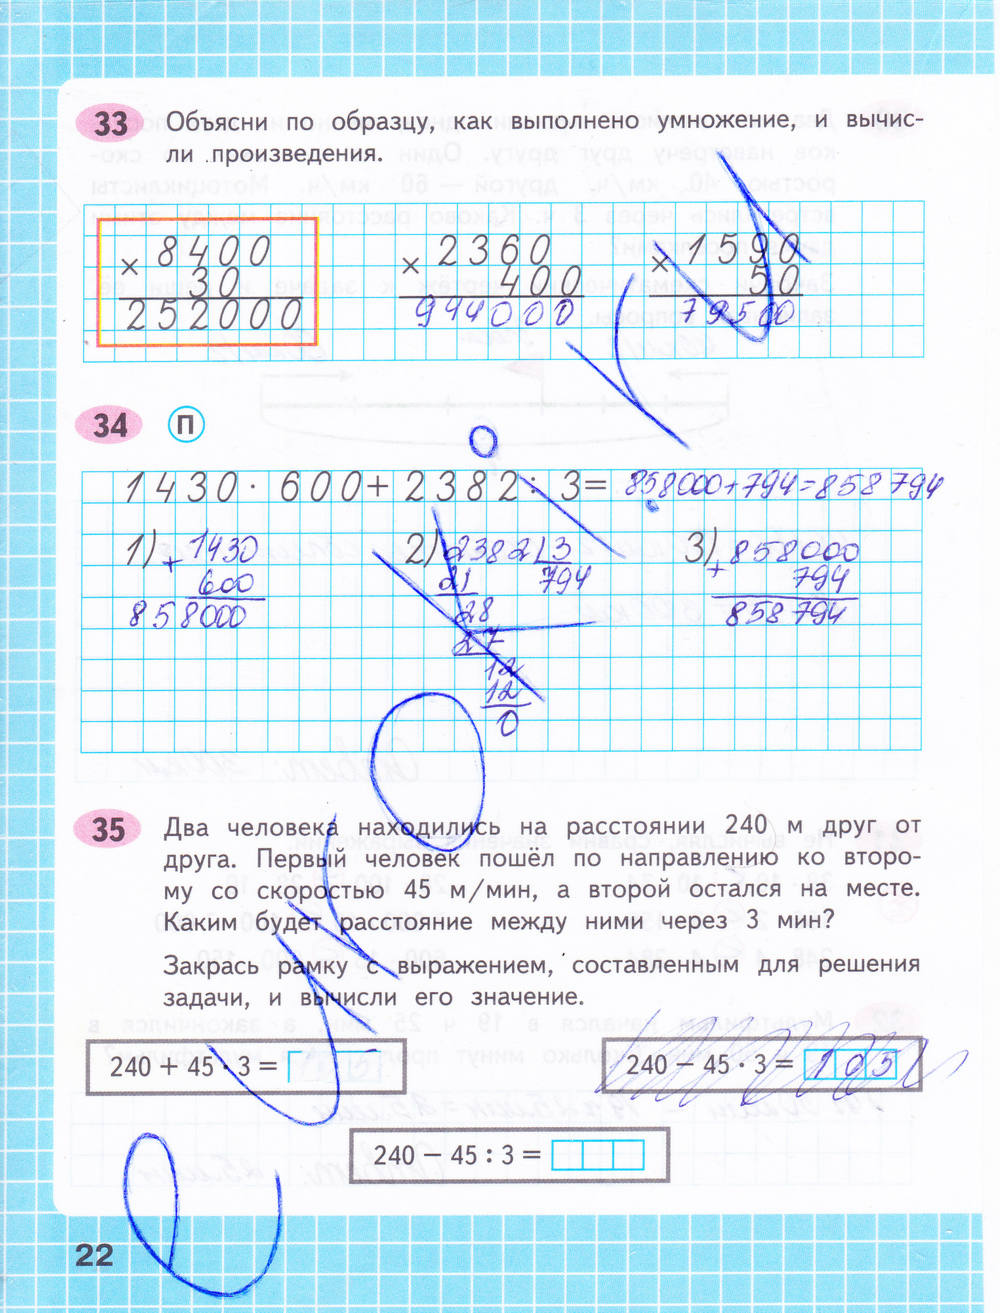 33 Объясни по образцу, как выполнено умножение, и вычис-
ли произведения.
× 8400 × 2360 × 1590
30 400 50
252000 944000 79500
34 П
1430 · 600 + 2382 : 3 = 858000+794=858794
1) + 1430 2) 2382 3 3) + 858000
600 21 794 794
858000 28 858794
27
12
12
0
35 Два человека находились на расстоянии 240 м друг от
друга. Первый человек пошёл по направлению ко второ-
му со скоростью 45 м/мин, а второй остался на месте.
Каким будет расстояние между ними через 3 мин?
Закрась рамку с выражением, составленным для решения
задачи, и вычисли его значение.
240 + 45 · 3 = 240 − 45 · 3 = 105
240 − 45 : 3 =
22